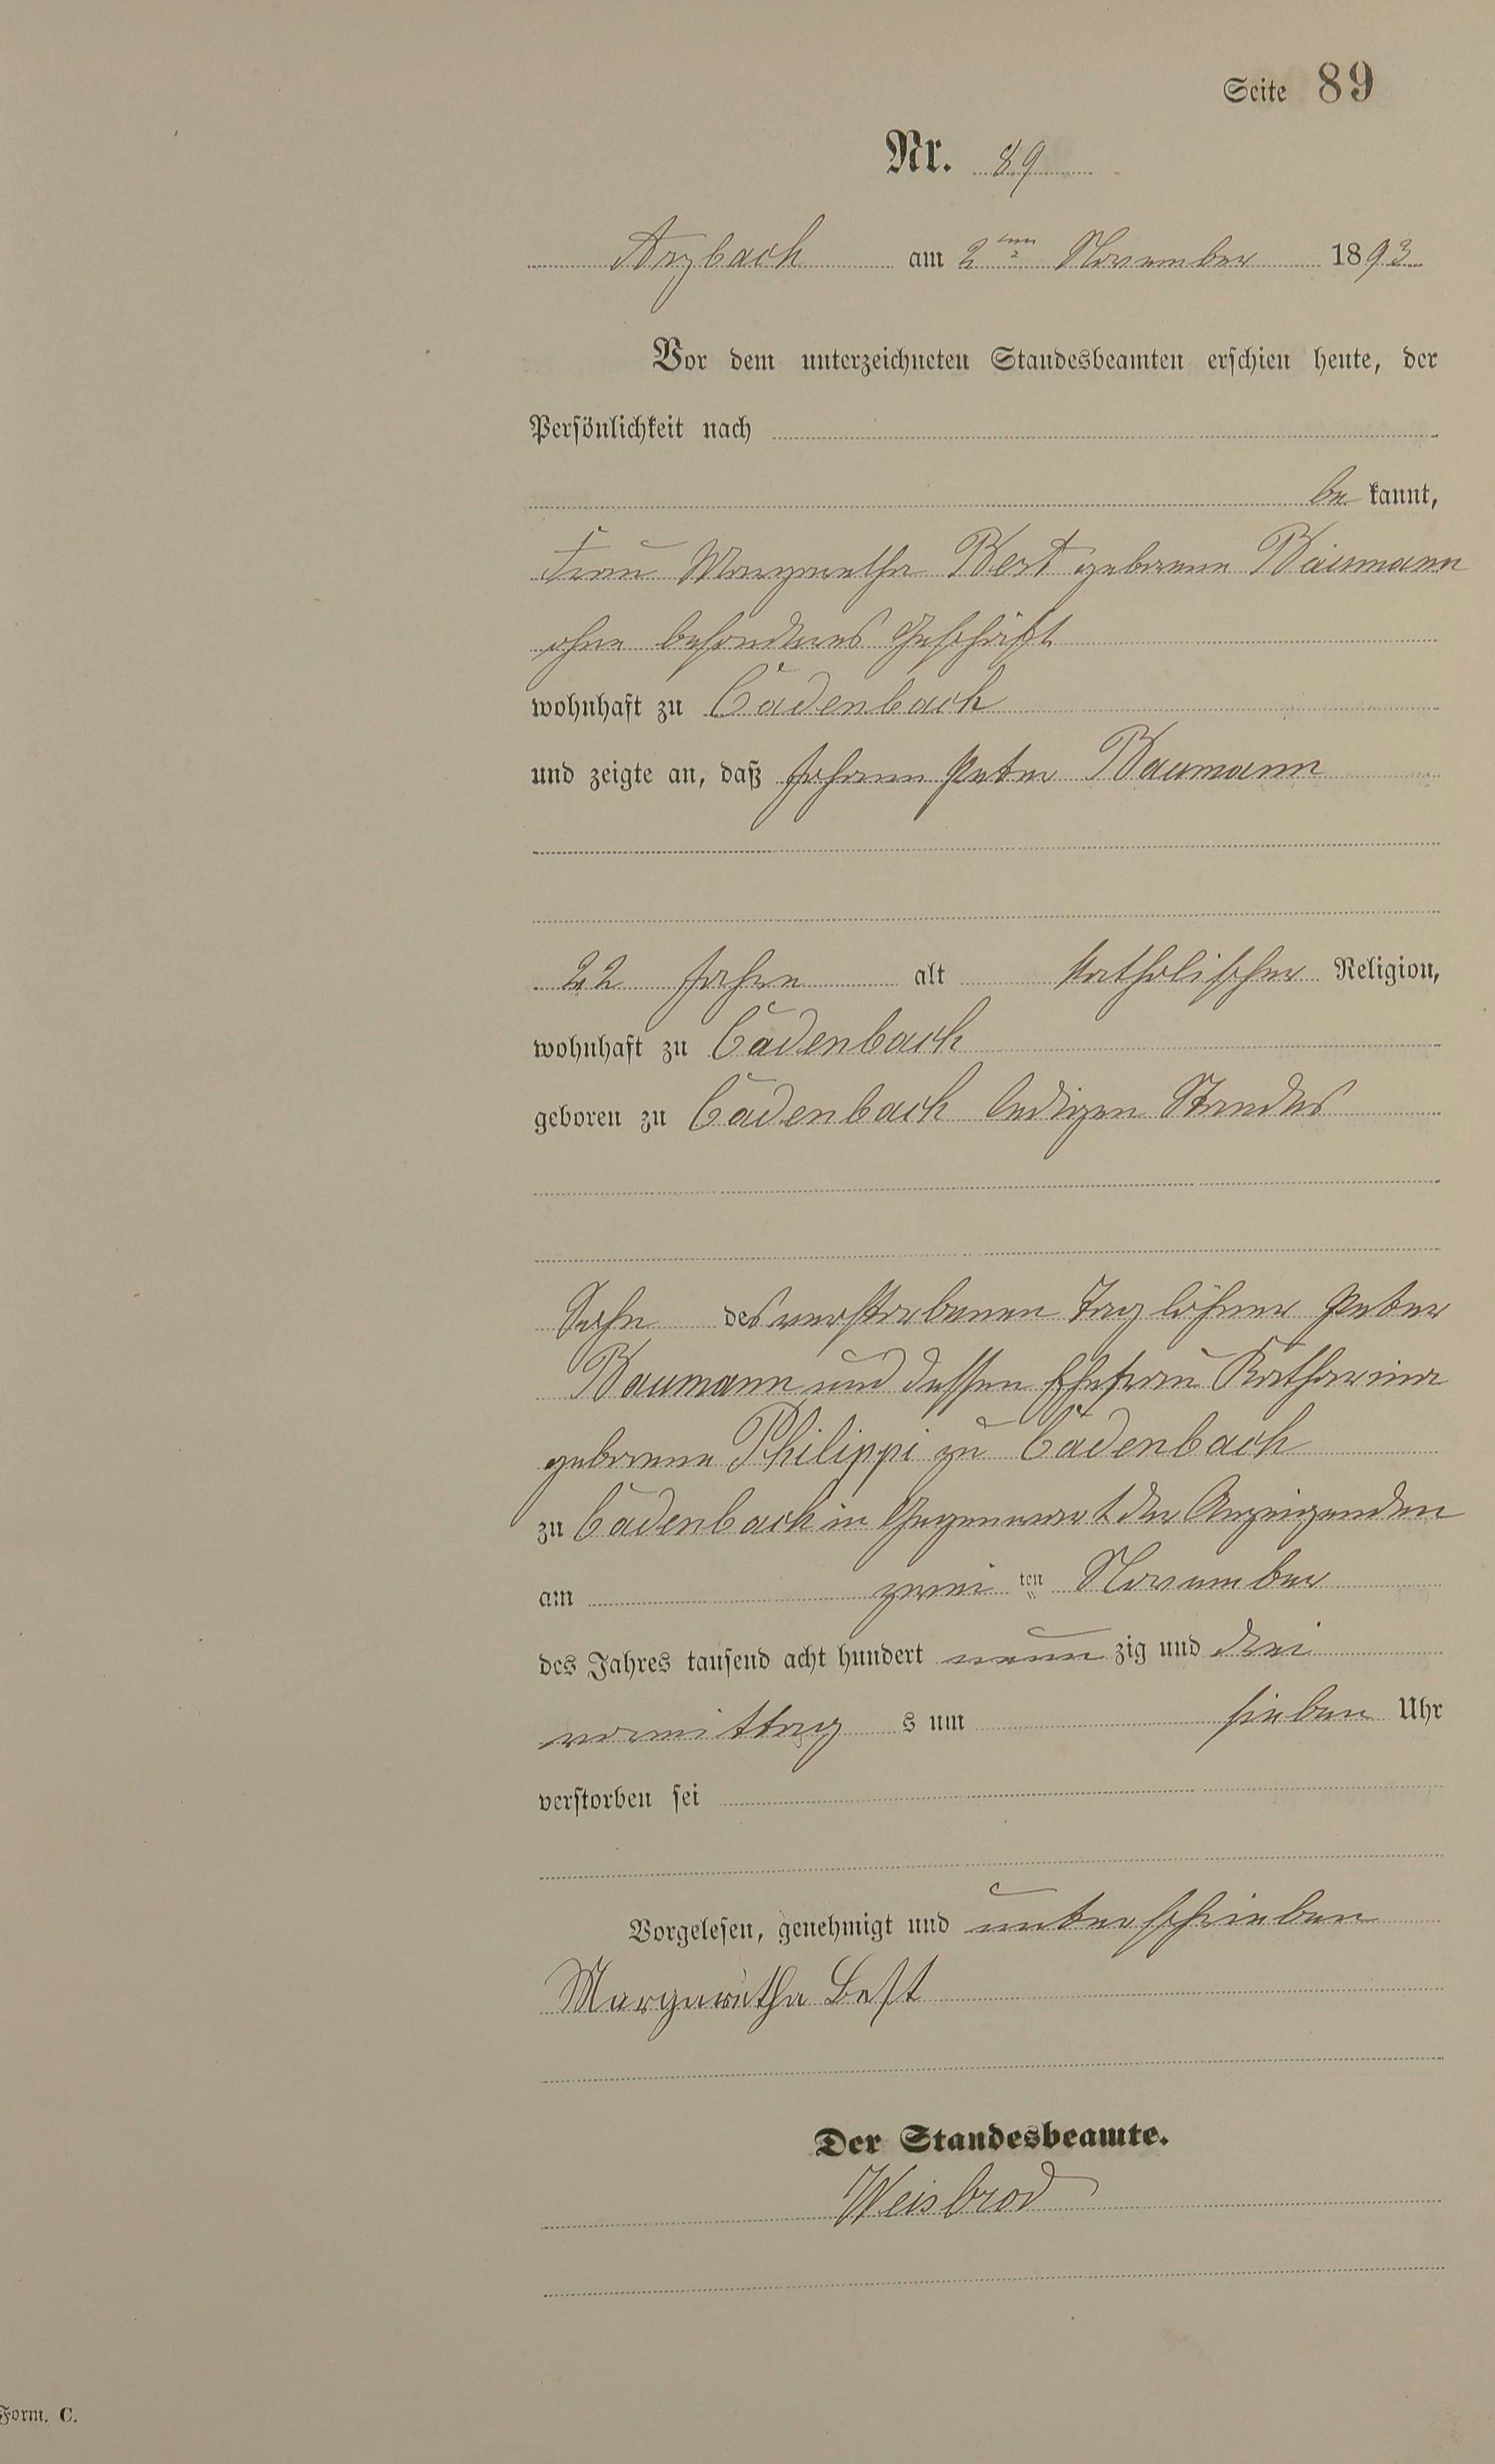 Seite 89
Nr. 89
Arzbach am 2ten November 1893
Vor dem unterzeichneten Standesbeamten erschien heute, der
Persönlichkeit nach
be kannt,
Frau Margaretha Best geborene Baumann
ohne besonderes Geschäft
wohnhaft zu Cadenbach
und zeigte an, daß Johann Peter Baumann
22 Jahre alt katholischer Religion,
wohnhaft zu Cadenbach
geboren zu Cadenbach ledigen Standes
Sohn des verstorbenen Taglöhner Peter
Baumann und dessen Ehefrau Katharina
geborene Philippi zu Cadenbach
zu Cadenbach in Gegenwart der Anzeigenden
am zwei ten November
des Jahres tausend acht hundert neun zig und drei
vormittag s um sieben Uhr
verstorben sei
Vorgelesen, genehmigt und unterschrieben
Margaretha Best
Der Standesbeamte.
Weisbrod
Form. C.